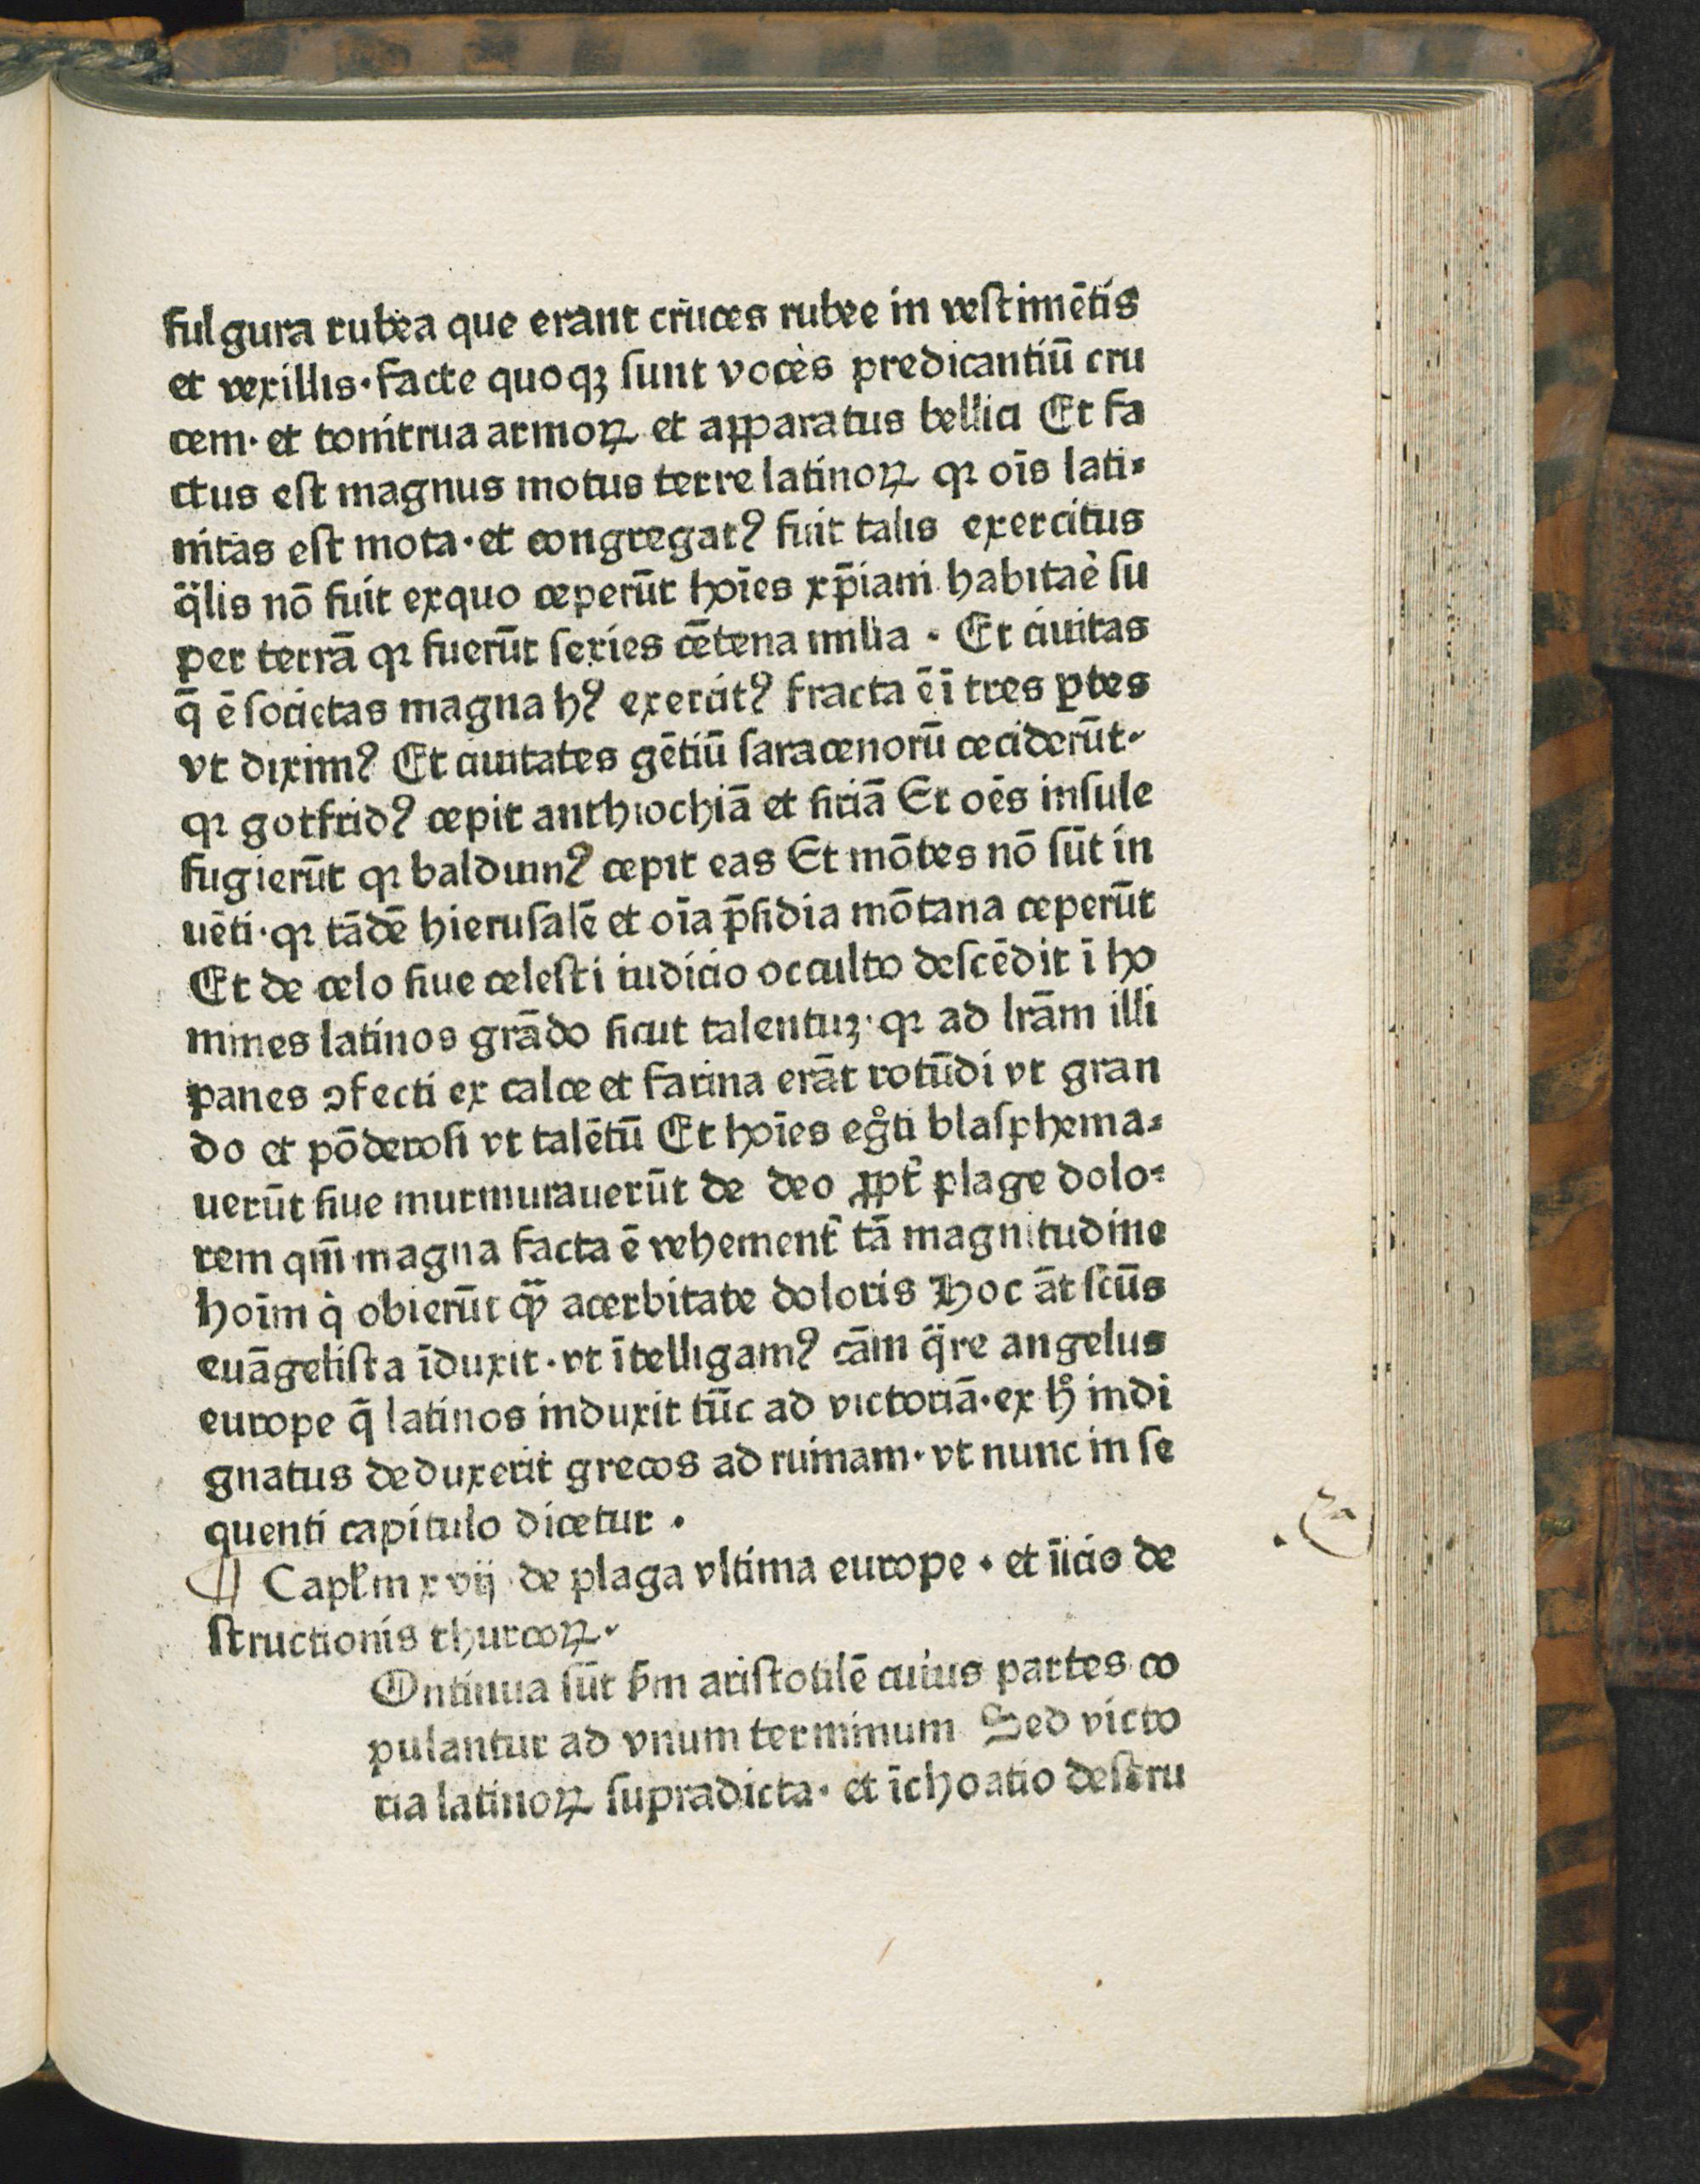 fulgura rubea que erant cruces rubee in veſtimētis
et vexillis·facte quoqꝫ ſunt voces predicantiū cru
cem· et tonitrua armoꝝ et apparatus bellici Et fa
ctus eſt magnus motus terre latinoꝝ qꝛ oīs lati⸗
nitas eſt mota·et congregatꝰ fuit talis exercitus
q̈lis nō fuit exquo ceperūt hoīes xp̄iani habitaè ſu
per terrā qꝛ fuerūt ſexies cētena milia · Et ciuitas
q̄ ē ſocietas magna hꝰ exercitꝰ fracta ē ī tres ꝑtes
vt diximꝰ Et ciuitates gētiū ſaracenorū ceciderūt·
qꝛ gotfridꝰ cepit anthiochiā et ſiriā Et oēs inſule
fugierūt qꝛ balduinꝰ cepit eas Et mōtes nō ſūt in
uēti·qꝛ tādē hieruſalē et oīa p̄ſidia mōtana ceperūt
Et de celo ſiue celeſti iudicio occulto deſcēdit ī ho
mines latinos grādo ſicut talentuꝫ·qꝛ ad lrām illi
panes ↄfecti ex calce et farina erāt rotūdi vt gran
do et pōderoſi vt talētū Et hoīes egͦti blaſphema⸗
uerūt ſiue murmurauerūt de deo ꝓpt̄ plage dolo⸗
rem qm̄ magna facta ē vehement̄ tā magnitudine
hoīm q̇ obierūt qͣꝫ acerbitate doloris Hoc āt ſcūs
euāgeliſta īduxit·vt ītelligamꝰ cām q̈re angelus
europe q̄ latinos induxit tūc ad victoriā·ex hͦ indi
gnatus deduxerit grecos ad ruinam·vt nunc in ſe
quenti capitulo dicetur ·
¶ Capl̄m xvij de plaga vltima europe · et īicio de
ſtructionis thurcoꝝ·
Ontinua ſūt ẜm ariſtotilē cuius partes co
pulantur ad vnum terminum Sed victo
ria latinoꝝ ſupradicta· et īchoatio deſtru